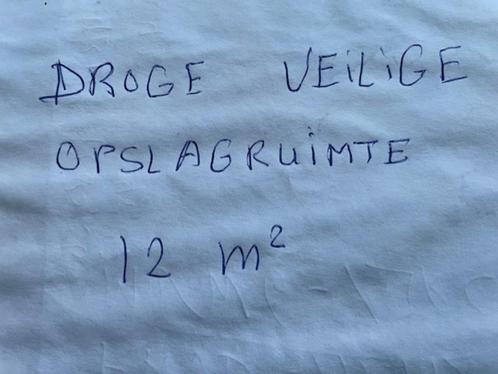 DROGE VEILIGE
OPSLAGRUIMTE
12 m²